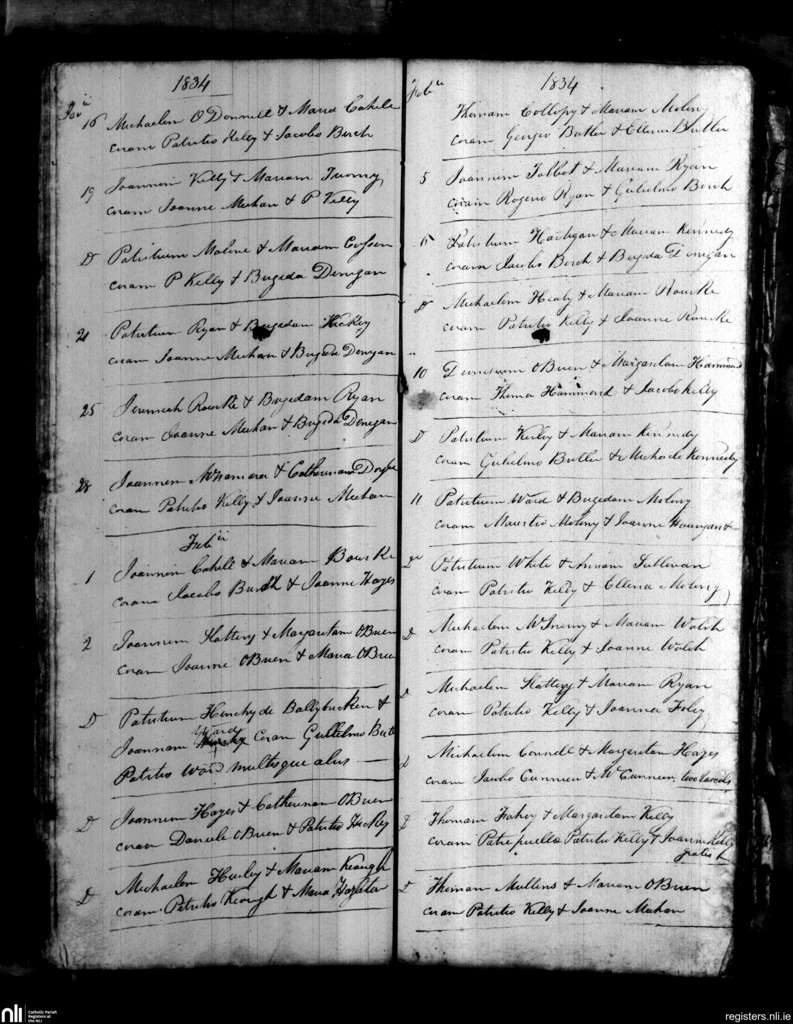 1834
16 Michaelem O'Donnell & Maria Cahill
coram Patritio Kelly & Jacobo Birch
19 Joannem Kelly & Mariam Twomy
coram Joanne Meehan & P Kelly
D Patritium Malone & Mariam
coram P Kelly & Brigida Denegan
21 Patritium Ryan & Brigidam Hickey
coram Joanne Meehan & Brigida Denegan
25 Jeremiah Rourke & Brigidam Ryan
coram Joanne Meehan & Brigida Denegan
28 Joannem McNamara & Catherinam
coram Patritio Kelly & Joanne Meehan
1 Joannem Cahill & Mariam Bourke
coram Jacobo Birch & Joanne Hayes
2 Joannem Slattery & Margaritam OBrien
coram Joanne OBrien & Maria OBrien
D Patritium Hinchy de Ballybricken &
Joannam Ward coram Gulielmo
Patritio Ward multisque aliis
D Joannem Hayes & Catherinam OBrien
coram Daniele OBrien & Patritio Hickey
D Michaelem Hurley & Mariam Keough
coram Patritio Keough & Maria
1834
Thomam Collopy & Mariam Molony
coram Georgio Butler & Ellena Butler
5 Joannem Talbot & Mariam Ryan
coram Rogerio Ryan & Gulielmo Birch
Patritium Hartigan & Mariam Kennedy
coram Jacobo Birch & Brigida Denegan
D Michaelem Healy & Mariam Rourke
coram Patritio Kelly & Joanne Rourke
10 OBrien & Margaritam Hammond
coram Thoma Hammond & Jacobo Kelly
D Patritium Kerby & Mariam Kennedy
coram Gulielmo Butler & Kennedy
11 Patritium Ward & Brigidam Molony
coram Mauritio Molony & Joanne
Patritium White & Annam Sullivan
coram Patritio Kelly & Ellena Molony
D Michaelem McInerny & Mariam Walsh
coram Patritio Kelly & Joanne Walsh
D Michaelem Slattery & Mariam Ryan
coram Patritio Kelly & Joanna Foley
D Michaelem Connell & Margaritam Hayes
coram Jacobo Cunneen & Mc Cunneen
D Thomam Fahey & Margaritam Kelly
coram Patre puellae Patritio Kelly & Joanne Kelly
gratis
D Thomam Mullens & Mariam OBrien
coram Patritio Kelly & Joanne Meehan
nli
Catholic Parish
Registers at
the NLI
registers.nli.ie